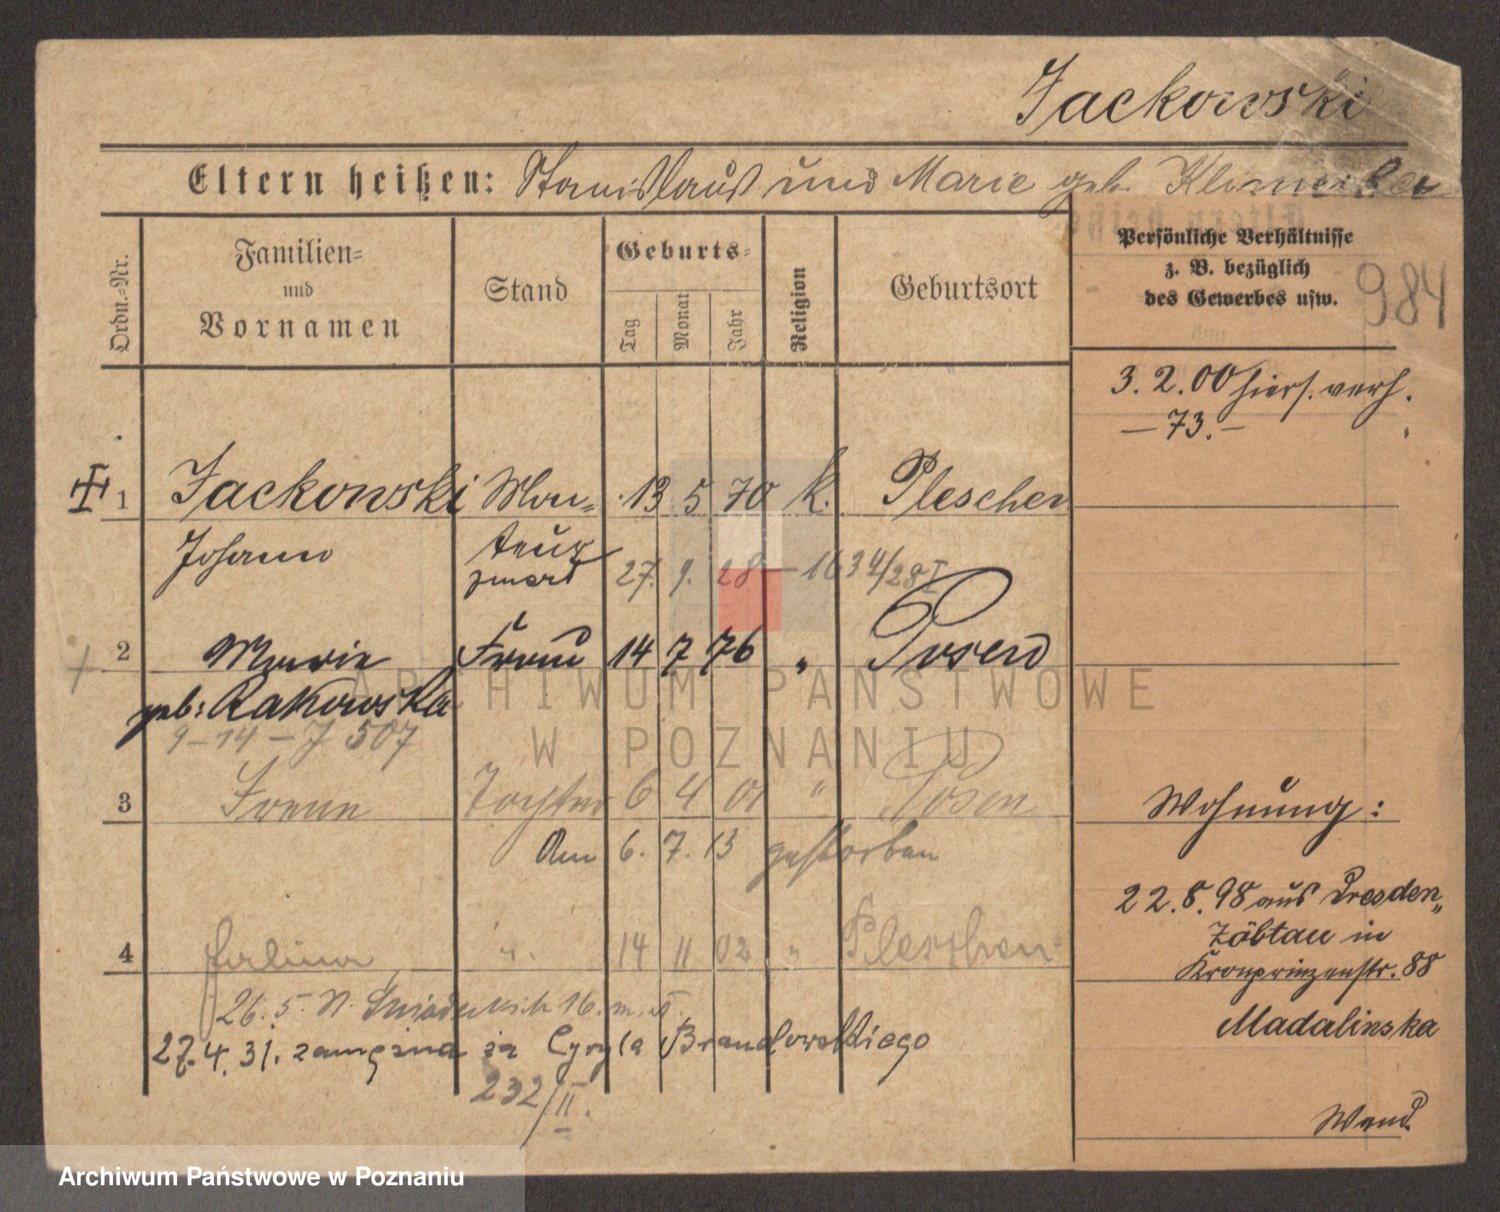 Jackowski
Eltern heißen: Stanislaus und Marie geb.
Ordn.-Nr.
Familien-
und
Vornamen
Stand
Geburts-
Tag
Monat
Jahr
Religion
Geburtsort
Persönliche Verhältnisse
z. B. bezüglich
des Gewerbes usw.
984
3. 2. 00 hiers. verh.
— 73. —
1 Jackowski Mon- 13 5 70 k. Pleschen
Johann teur
zmarł 27. 9. 28 — 1634/28 I
2 Marie Frau 14 7 76 " Posen
geb: Rakowska
9-14-J 507
3 Irene Tochter 6 4 01 " Posen
Am 6. 7. 13 gestorben
4 Halina " 14 11 02 " Pleschen
26. 5. N. 16. m.
27. 4. 31. zamężna za Cyryla Brandowskiego
232/II.
Wohnung:
22. 8. 98 aus Dresden-
Löbtau in
Kronprinzenstr. 88
Madalinska
Wand.
ARCHIWUM PAŃSTWOWE
W POZNANIU
Archiwum Państwowe w Poznaniu